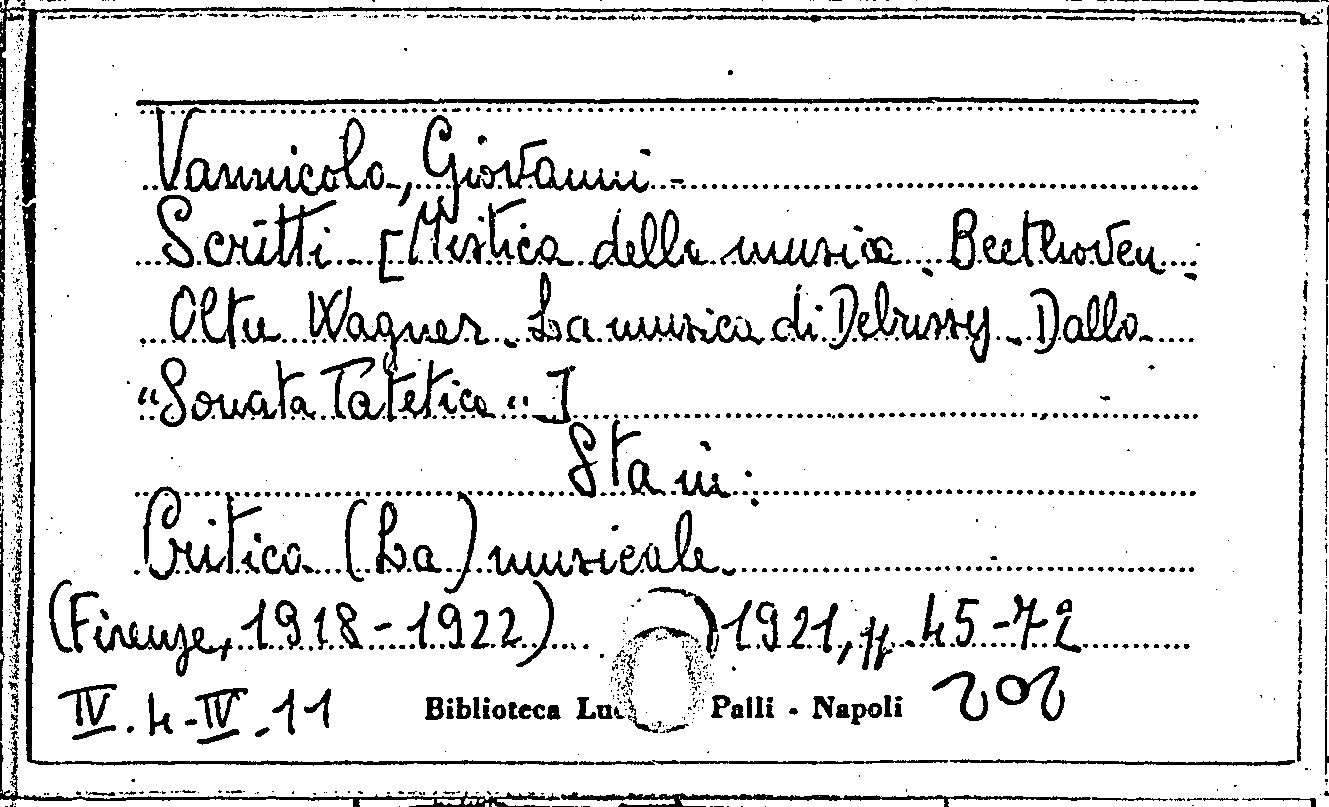 Vannicola, Giovanni -
Scritti - [Mistica della musica. Beethoven -
Oltre Wagner - La musica di Debussy - Dalla
"Sonata Patetica"]
Sta in:
Critica (La) musicale.
(Firenze, 1918-1922) 1921, pp. 45-72
IV. 4 - IV. 11 Biblioteca Palli - Napoli